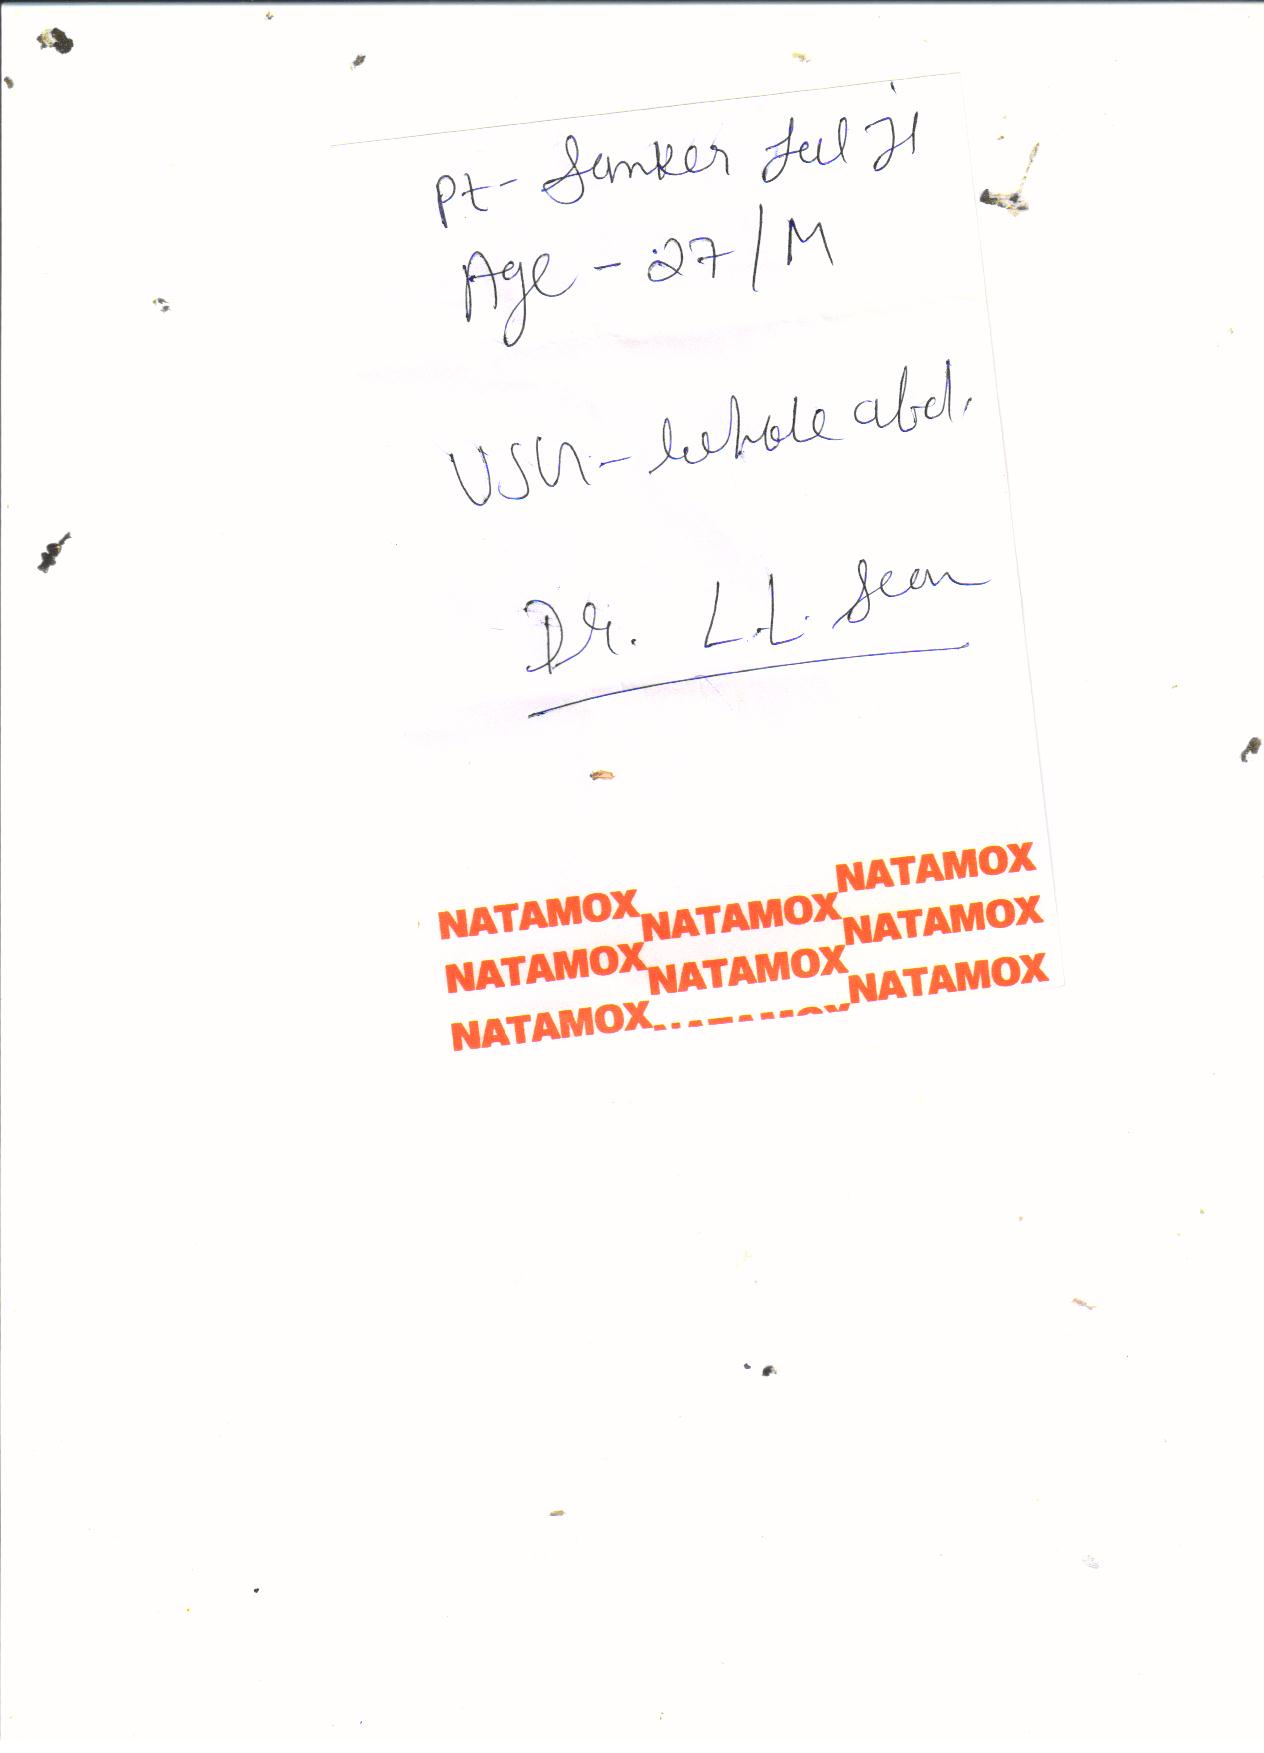 Pt- Sanker Lal Ji
Age - 27/M
USG - whole abd.
Dr. L.L. Sean
NATAMOX
NATAMOX NATAMOX NATAMOX
NATAMOX NATAMOX NATAMOX
NATAMOX